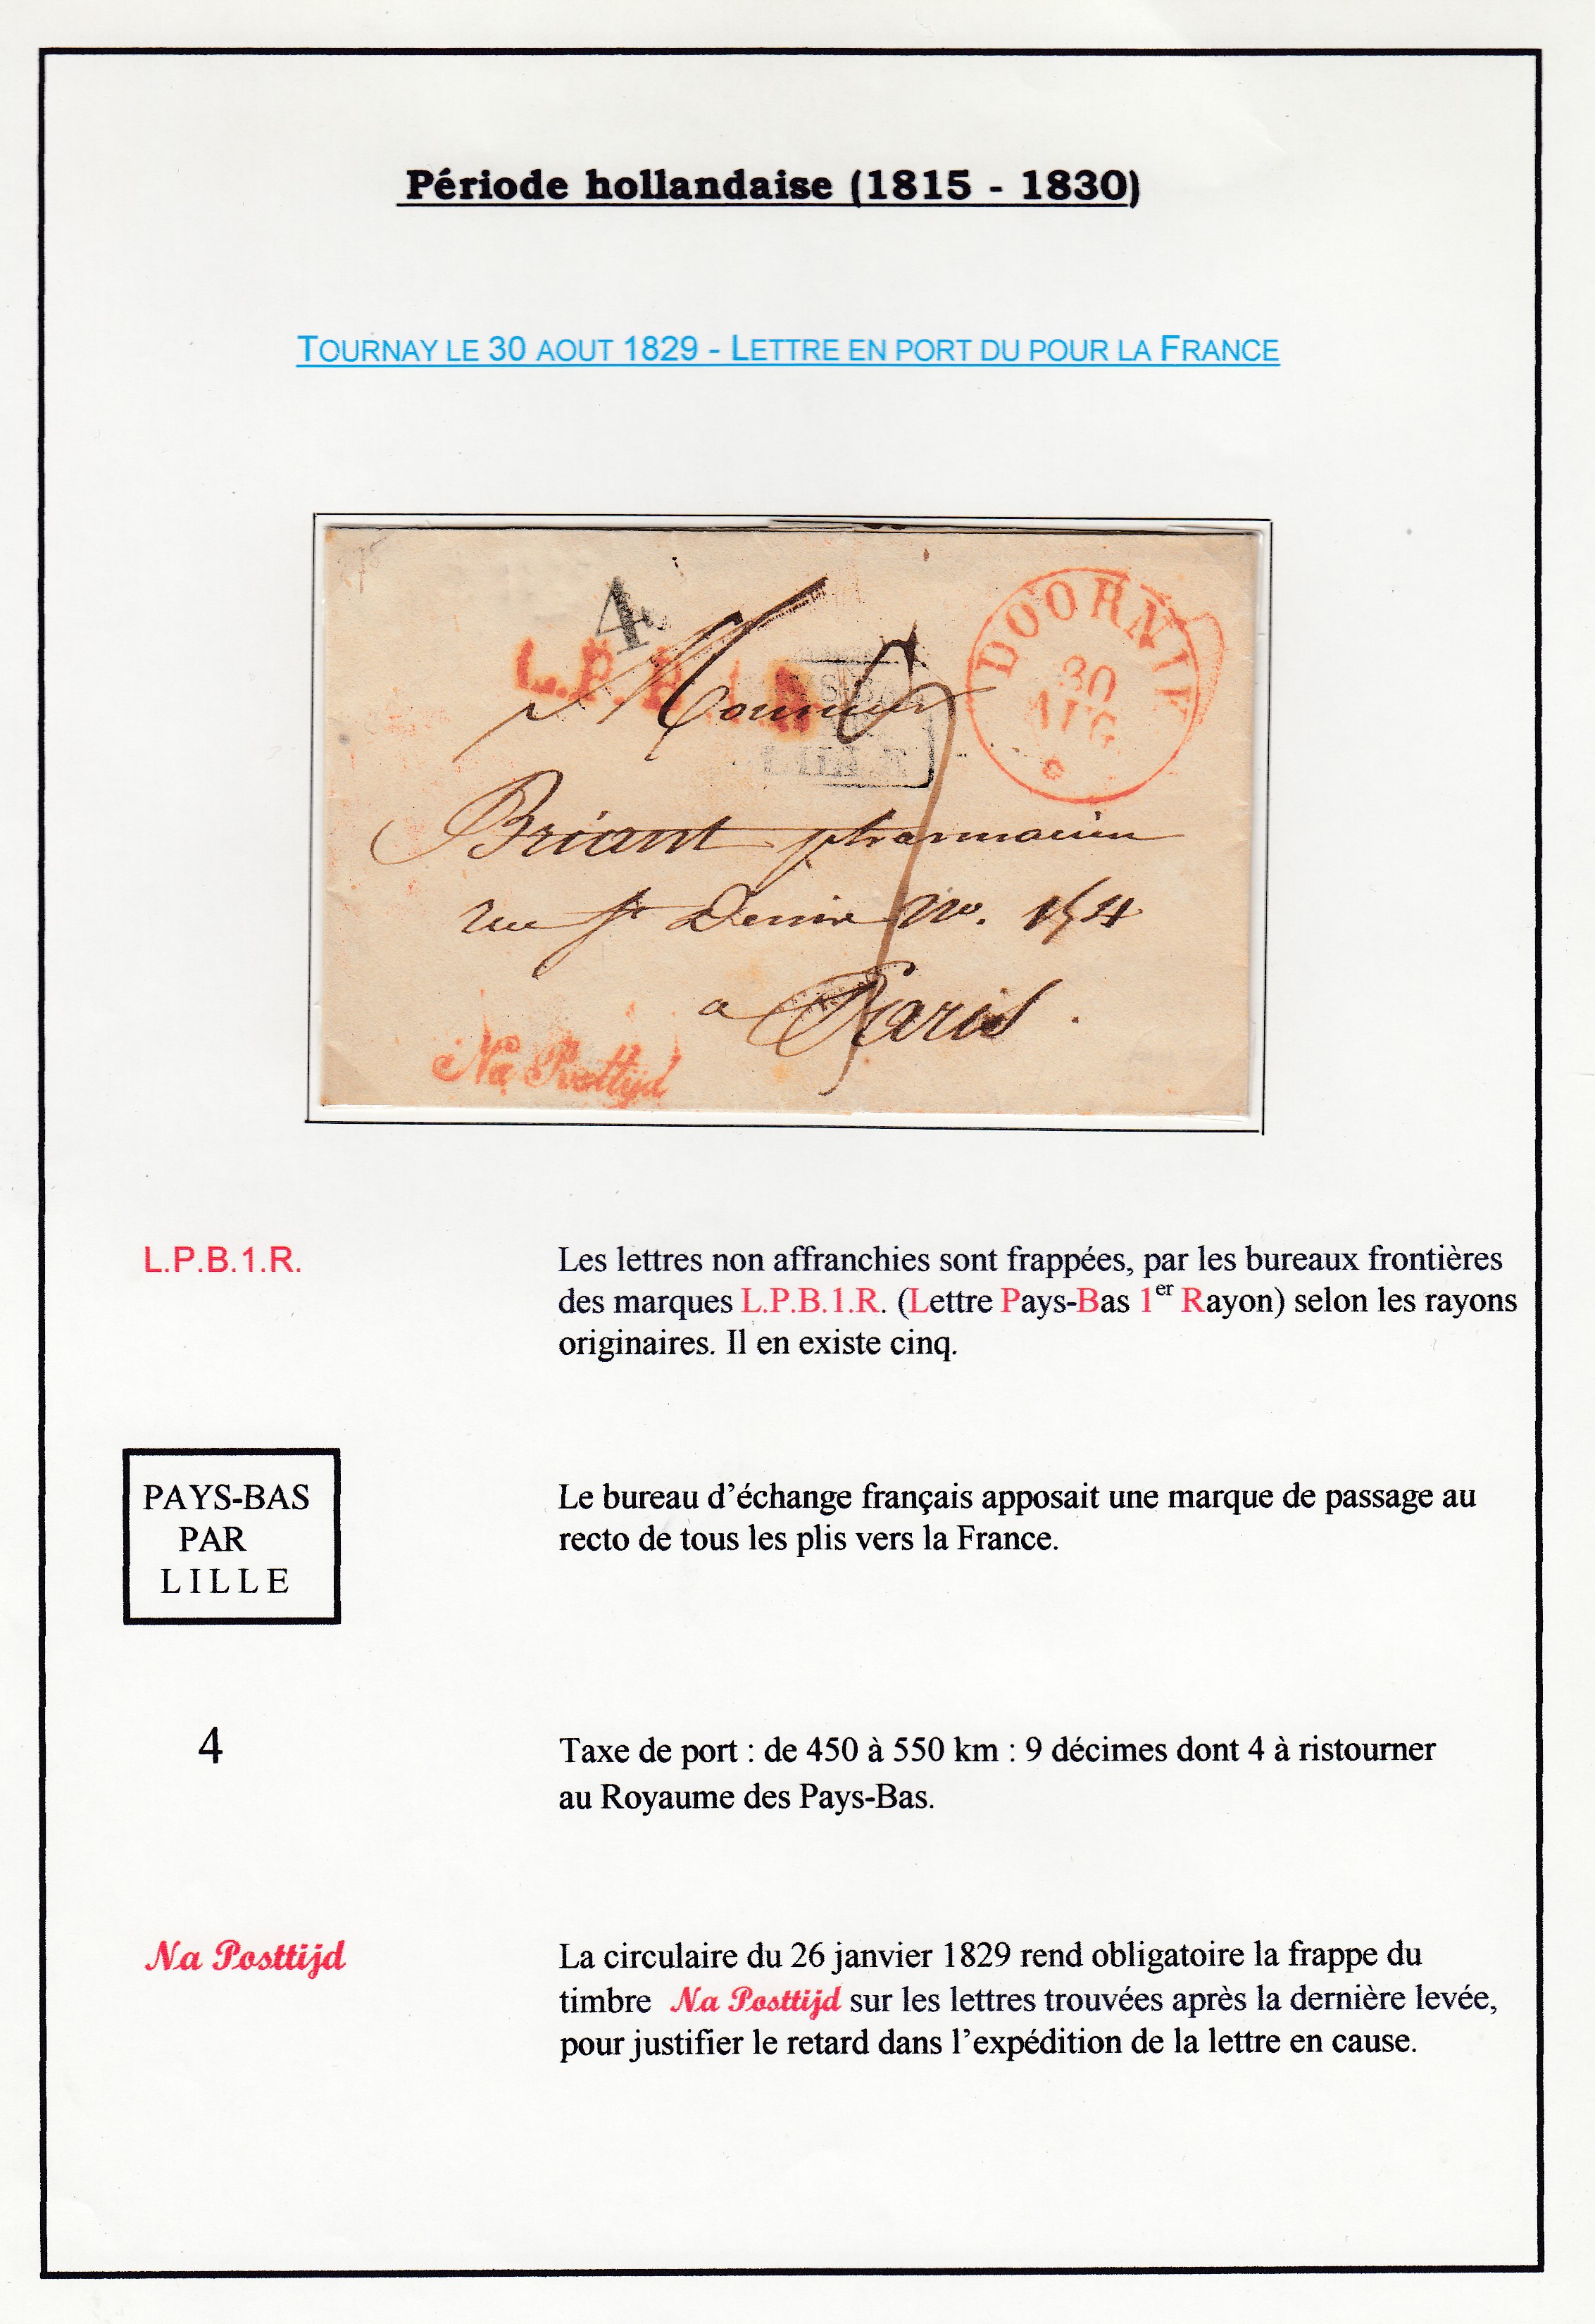 Période hollandaise (1815 - 1830)
TOURNAY LE 30 AOUT 1829 - LETTRE EN PORT DU POUR LA FRANCE
4
DOORNIK
30
AUG
L.P.B.1.R
Monsieur
LILLE
Briant pharmacien
rue St Denis No. 154
a Paris.
Na Posttijd
L.P.B.1.R.
Les lettres non affranchies sont frappées, par les bureaux frontières
des marques L.P.B.1.R. (Lettre Pays-Bas 1er Rayon) selon les rayons
originaires. Il en existe cinq.
PAYS-BAS
PAR
LILLE
Le bureau d’échange français apposait une marque de passage au
recto de tous les plis vers la France.
4
Taxe de port : de 450 à 550 km : 9 décimes dont 4 à ristourner
au Royaume des Pays-Bas.
Na Posttijd
La circulaire du 26 janvier 1829 rend obligatoire la frappe du
timbre Na Posttijd sur les lettres trouvées après la dernière levée,
pour justifier le retard dans l’expédition de la lettre en cause.